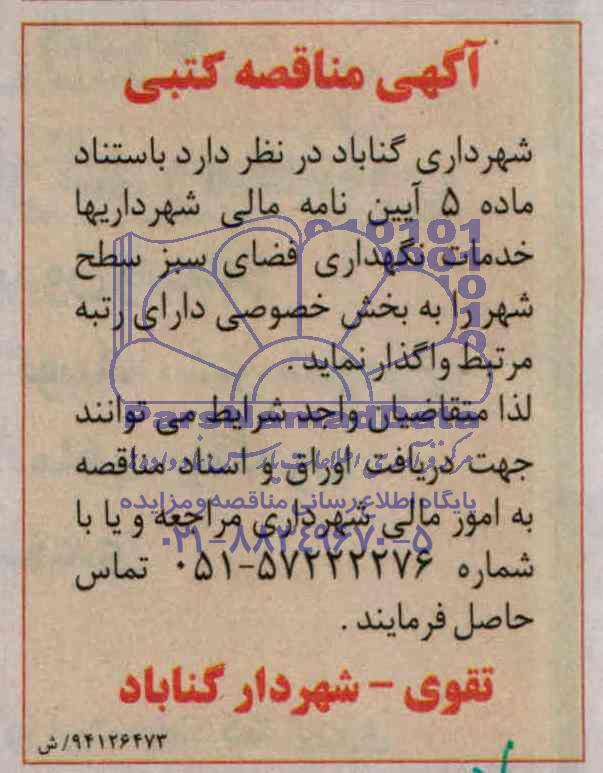 آگهی مناقصه کتبی
شهرداری گناباد در نظر دارد باستناد
ماده ۵ آیین نامه مالی شهرداریها
خدمات نگهداری فضای سبز سطح
شهر را به بخش خصوصی دارای رتبه
مرتبط واگذار نماید .
لذا متقاضیان واجد شرایط می توانند
ParsNamadData
جهت دریافت اوراق و اسناد مناقصه
پایگاه اطلاع رسانی مناقصه و مزایده
به امور مالی شهرداری مراجعه و یا با
۰۲۱-۸۸۳۴۹۶۷۰-۵
شماره ۵۷۲۲۲۲۷۶-۰۵۱ تماس
حاصل فرمایند .
تقوی - شهردار گناباد
۹۴۱۲۶۴۷۳/ش